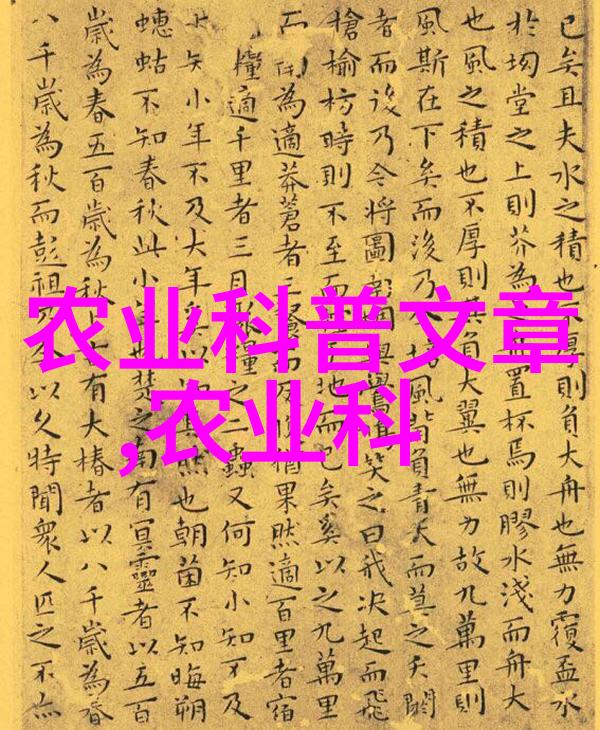 农业科普文章
,农业科
已矣且夫水之積也厚則負大舟也無力覆盃水
於坳堂之上則芥為置杯焉則膠水淺而舟大
也風之積也不厚則其負大翼也無力故九萬里則
風斯在下矣而後乃今培風背負青天而莫之夭閼
者而後乃今將圖南蜩與鷽笑之曰我決起而飛
槍榆枋時則不至而地而已矣奚以之九萬里
而為適莽蒼者三而反腹猶果然適百里者宿
糧適千里者三月糧之二蟲又何知小知不及
小年不及大年奚以知其然也朝菌不知晦朔
蟪蛄不知春秋此小年也楚之南有冥靈者以五百
歲為春五百歲為秋上古有大椿者以八千歲為春
八千歲為秋而彭祖乃今以久特聞衆人匹之不亦